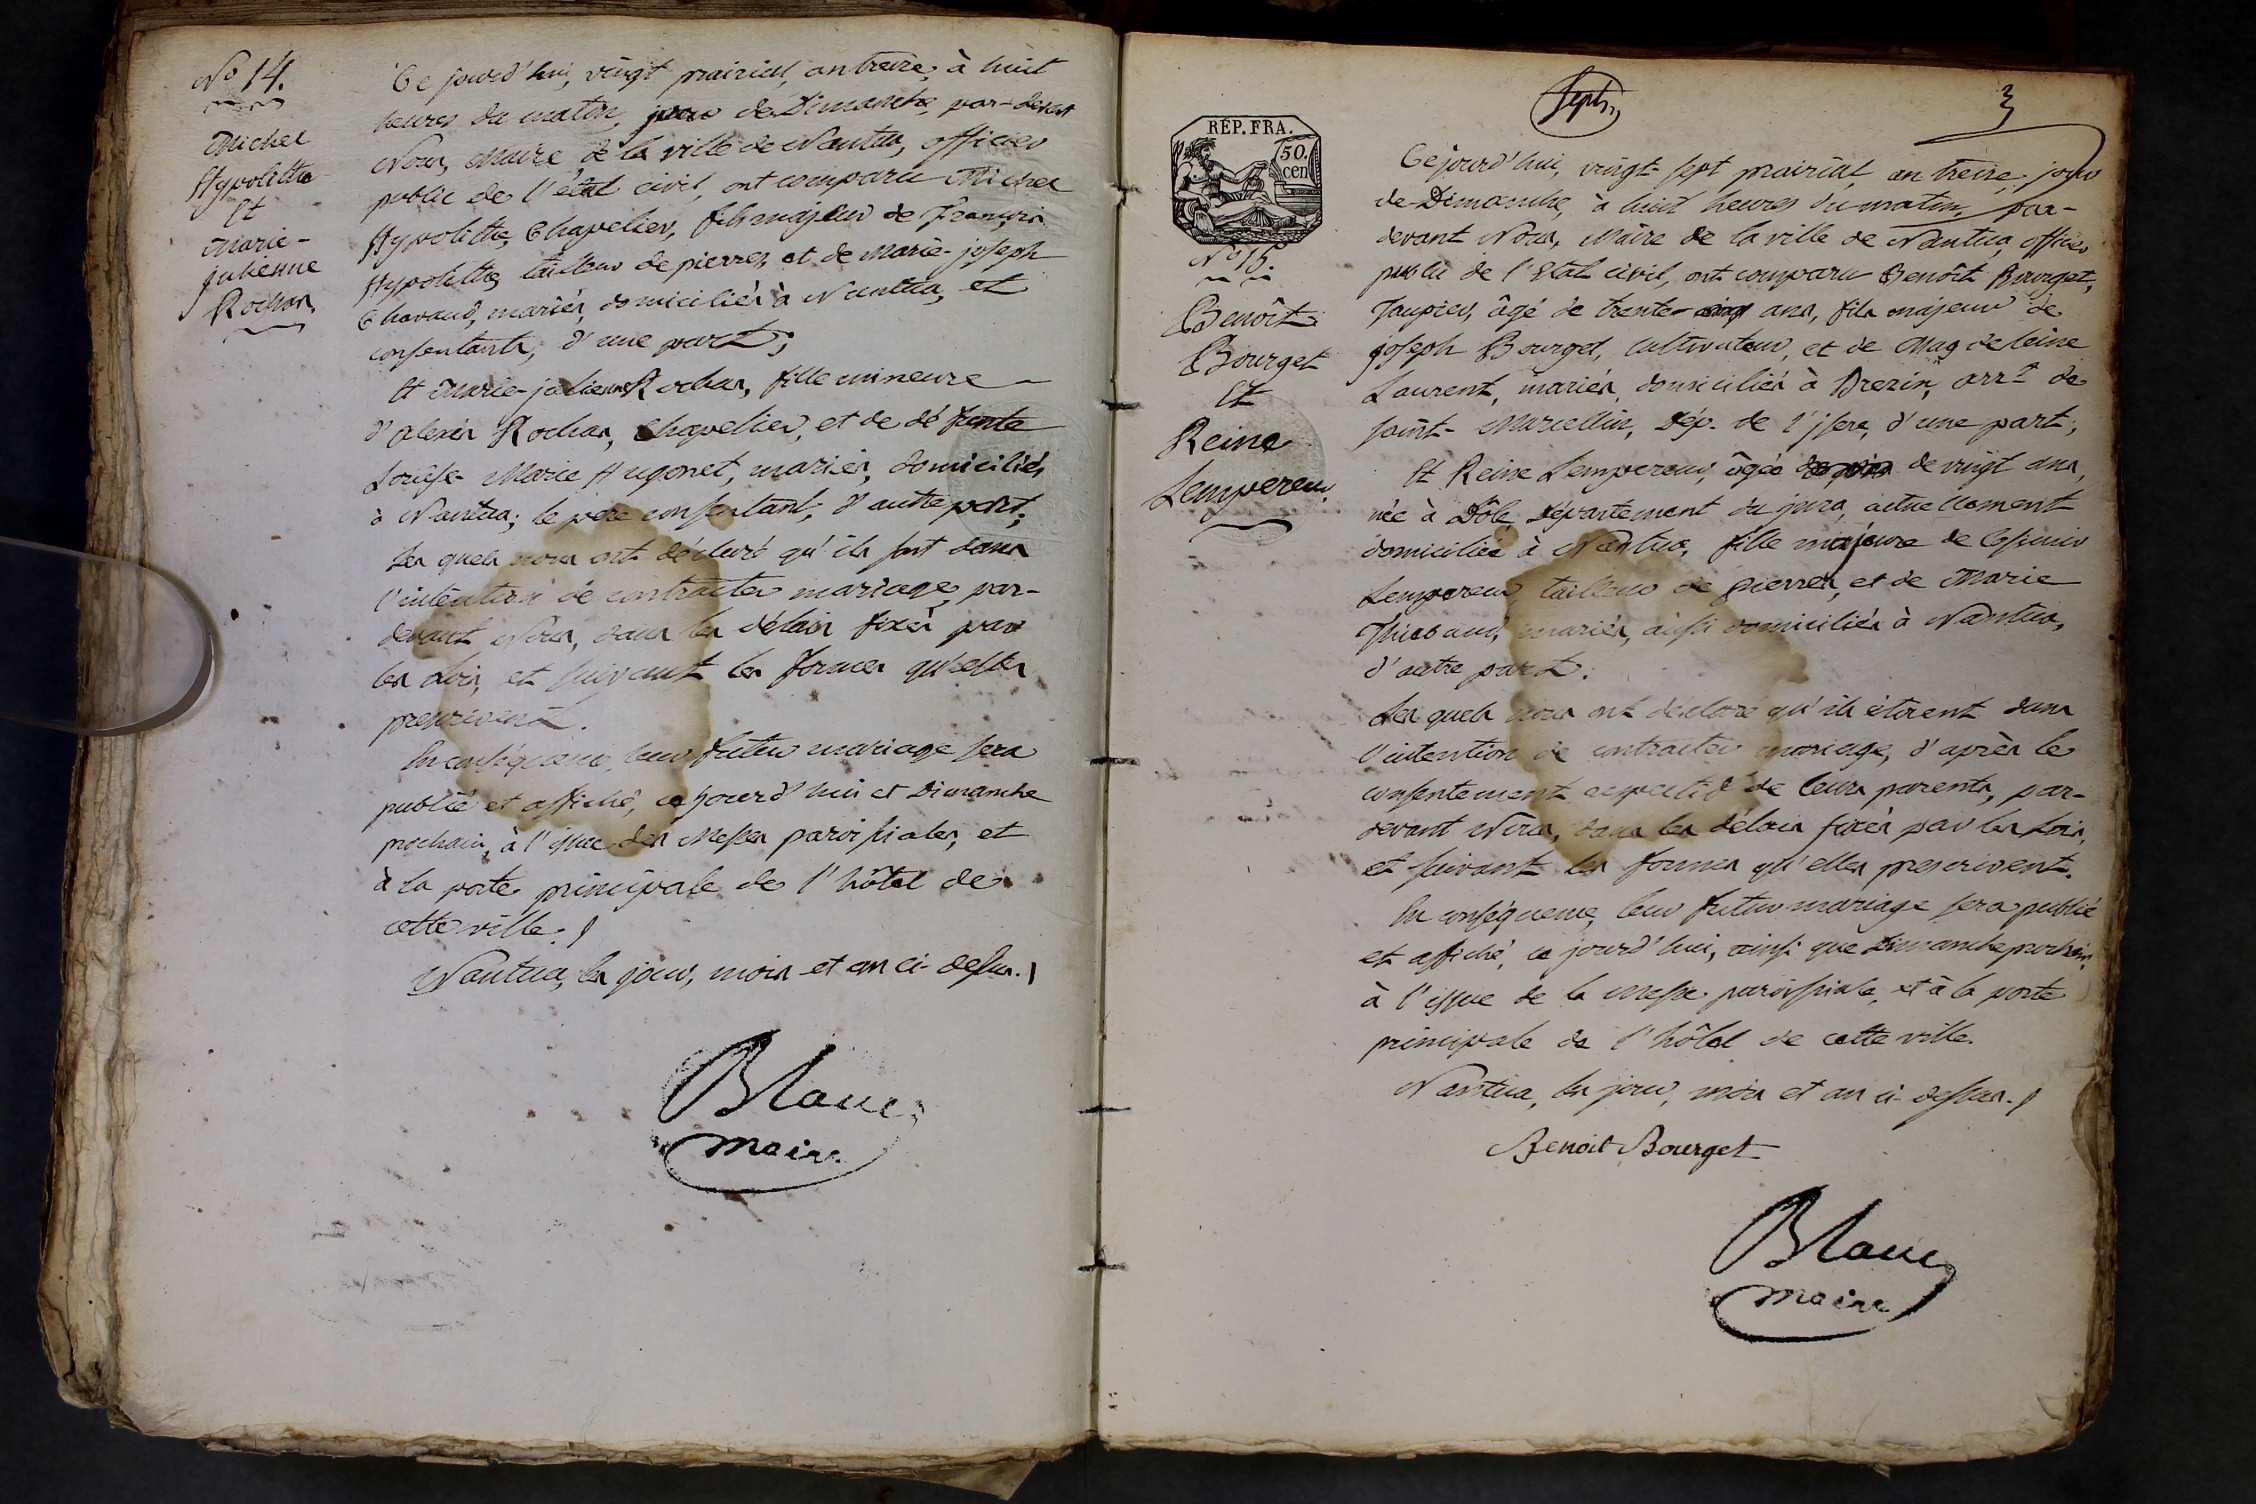 N.o 14.
Michel
Hypolitte
Et
Marie-
Julienne
Rochas
Ce jourd'hui, vingt prairial, an treize, à huit
heures du matin, jour de Dimanche, par-devant
Nous, Maire de la ville de Nantua, officier
public de l'état civil, ont comparu Michel
Hypolitte, Chapelier, fils majeur de François
Hypolitte, tailleur de pierres, et de Marie-joseph
Chavaud, mariés, domiciliés à Nantua, et
consentants, d'une part;
Et Marie-julienne Rochas, fille mineure
d'alexis Rochas, Chapelier, et de défunte
Louise-Marie Hugonet, mariés, domiciliés
à Nantua; le père consentant, d'autre part;
Les quels nous ont déclaré qu'ils sont dans
l'intention de contracter mariage, par-
devant Nous, dans les délais fixés par
les Lois, et suivant les formes qu'elles
prescrivent.
En conséquence, leur futur mariage sera
publié et affiché, ce jourd'hui et Dimanche
prochain, à l'issue des Messes paroissiales, et
à la porte principale de l'hôtel de
cette ville.
Nantua, les jour, mois et an ci-dessus.
Blanc
maire
Sept.
3
RÉP. FRA.
50.
cen
N.o 15.
Benoît
Bourget
Et
Reine
Lempereur
Ce jourd'hui, vingt-sept prairial, an treize, jour
de Dimanche, à huit heures du matin, par-
devant Nous, Maire de la ville de Nantua, officier
public de l'Etat civil, ont comparu Benoît Bourget,
âgé de trente-cinq ans, fils majeur de
joseph Bourget, Cultivateur, et de Magdeleine
Laurent, mariés, domiciliés à Brezin, arr.t de
saint-Marcellin, Dép. de l'jsere, d'une part;
Et Reine Lempereur, âgée de vingt ans,
née à Dôle, département du jura, actuellement
domiciliée à Nantua, fille majeure de
Lempereur, tailleur de pierres, et de Marie
Thiebaud, mariés, aussi domiciliés à Nantua,
d'autre part.
Les quels nous ont déclaré qu'ils étoient dans
l'intention de contracter mariage, d'après le
consentement respectif de leurs parents, par-
devant Nous, dans les délais fixés par les Lois,
et suivant les formes qu'elles prescrivent.
En conséquence, leur futur mariage sera publié
et affiché, ce jourd'hui, ainsi que Dimanche prochain,
à l'issue de la messe paroissiale, et à la porte
principale de l'hôtel de cette ville.
Nantua, les jour, mois et an ci-dessus.
Benoit Bourget
Blanc
maire